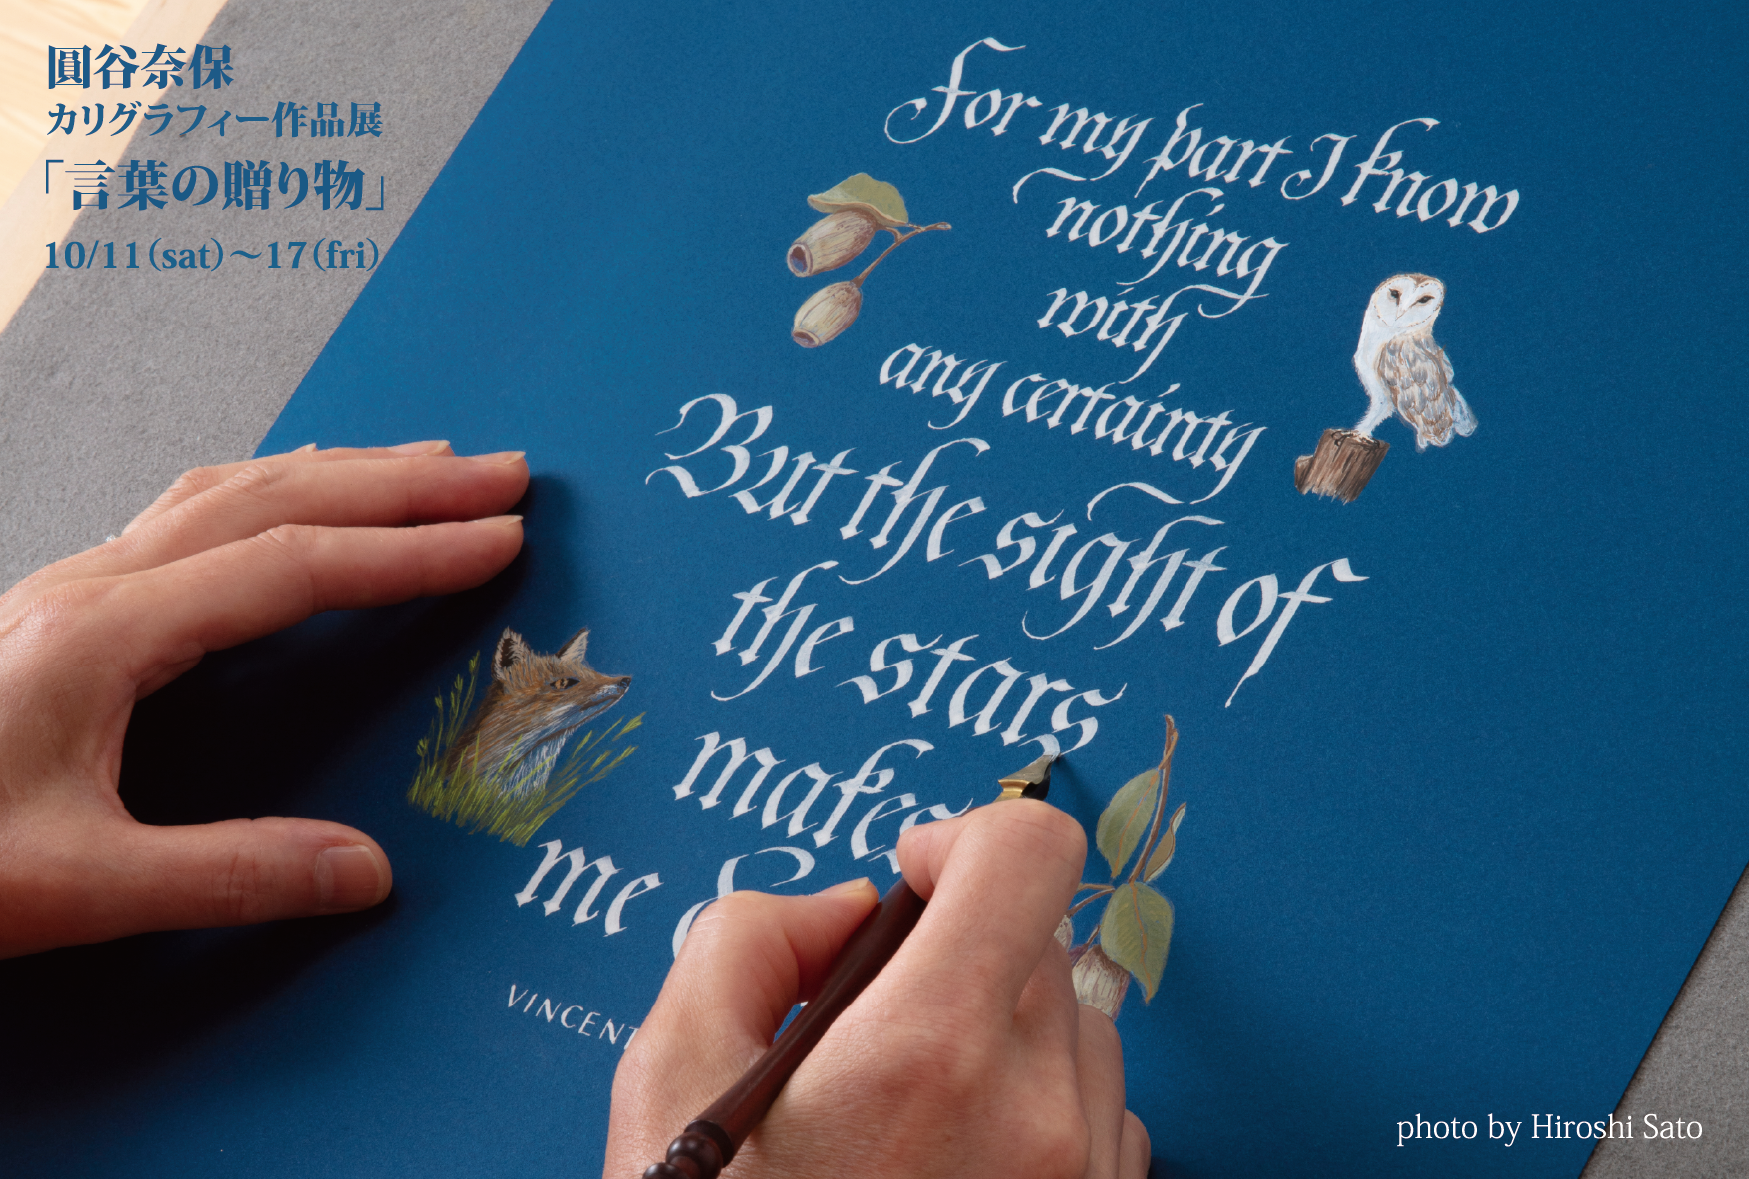 圓谷奈保
カリグラフィー作品展
「言葉の贈り物」
10/11(sat)〜17(fri)
For my part I know
nothing
with
any certainty
But the sight of
the stars
makes
me
VINCENT
photo by Hiroshi Sato